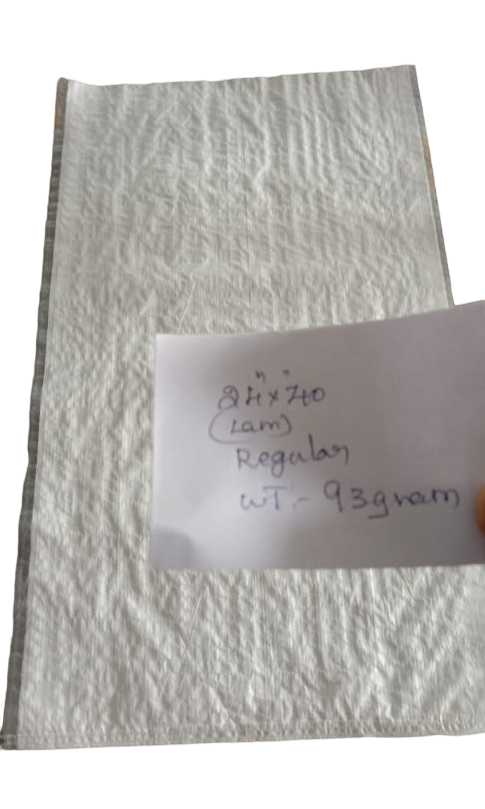 24"x40"
(Lam)
Regular
WT:- 93gram